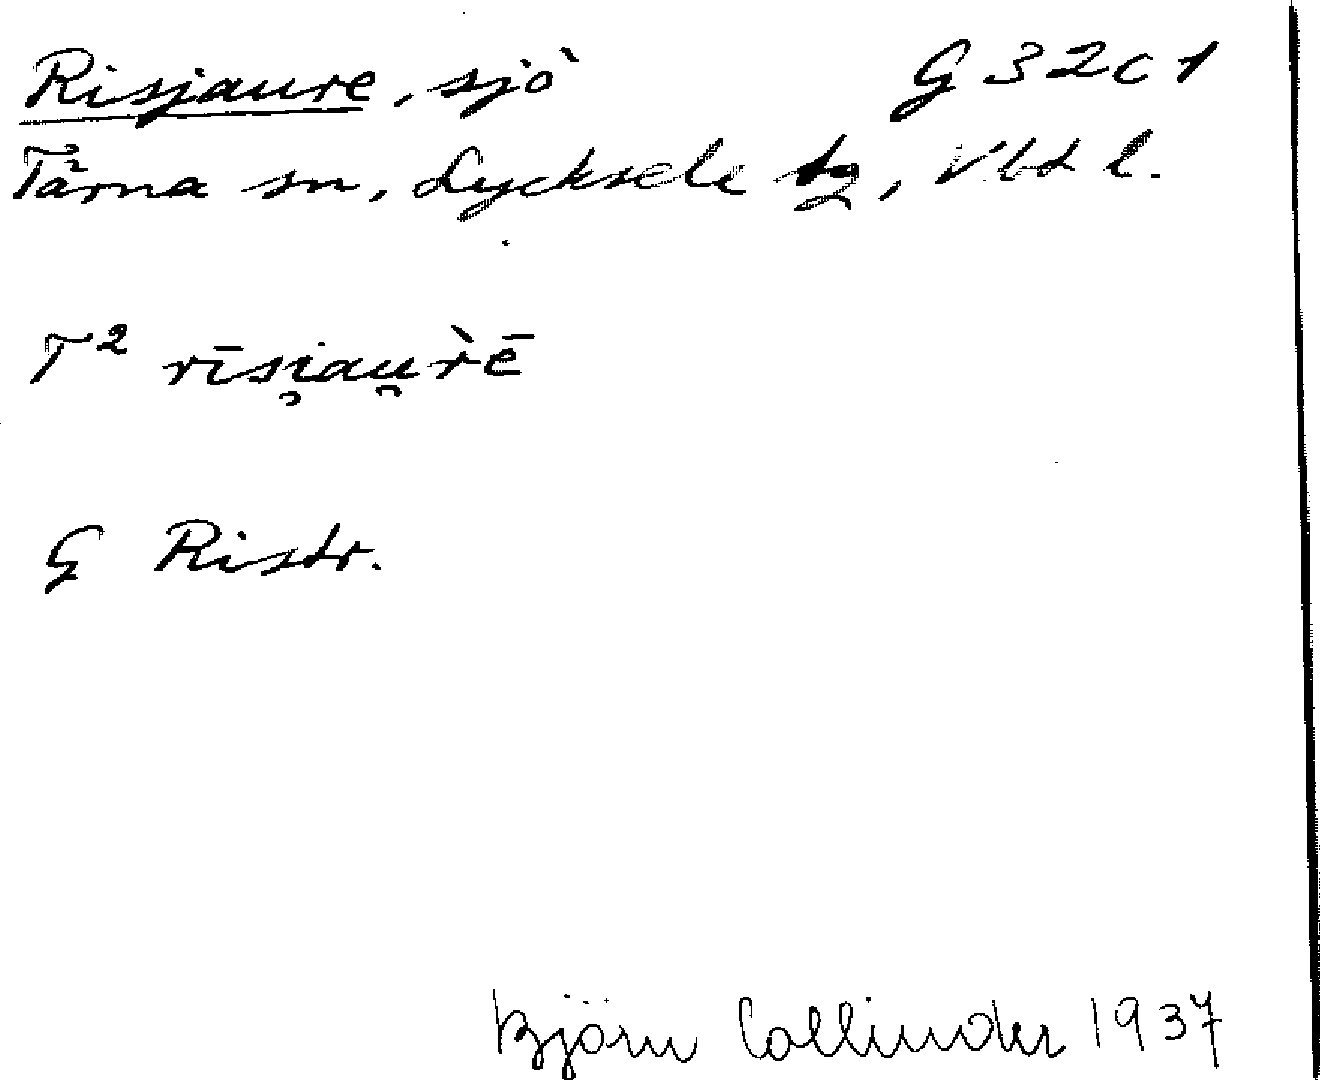 Risjaure, sjö G 32 c 1
Tärna sn, Lycksele tg, Vbt l.
T² rīsi̯au̯r̀ē
G Ristr.
Björn Collinder 1937